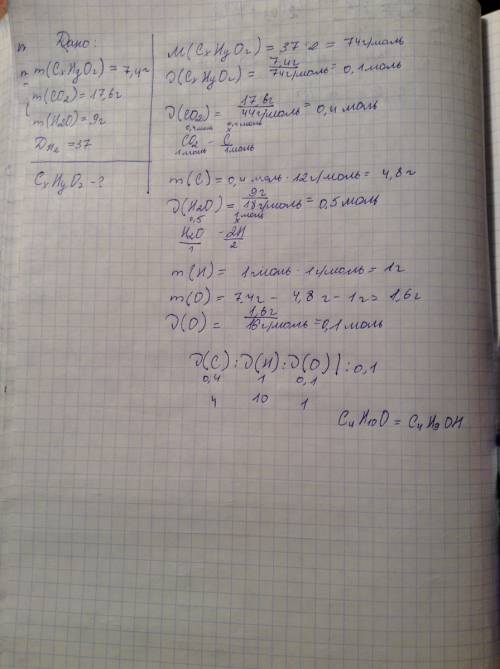 Дано:
m(CxHyOz) = 7,4г
m(CO2) = 17,6г
m(H2O) = 9г
DH2 = 37
CxHyOz - ?
M(CxHyOz) = 37 · 2 = 74г/моль
ν(CxHyOz) = 7,4г / 74г/моль = 0,1 моль
ν(CO2) = 17,6г / 44г/моль = 0,4 моль
0,4 моль x 0,4 моль
CO2 - C
1 моль 1 моль
m(C) = 0,4 моль · 12г/моль = 4,8г
ν(H2O) = 9г / 18г/моль = 0,5 моль
0,5 1 моль x
H2O - 2H
1 2
m(H) = 1 моль · 1г/моль = 1г
m(O) = 7,4г - 4,8г - 1г = 1,6г
ν(O) = 1,6г / 16г/моль = 0,1 моль
ν(C) : ν(H) : ν(O) | : 0,1
0,4 1 0,1
4 10 1
C4H10O = C4H9OH